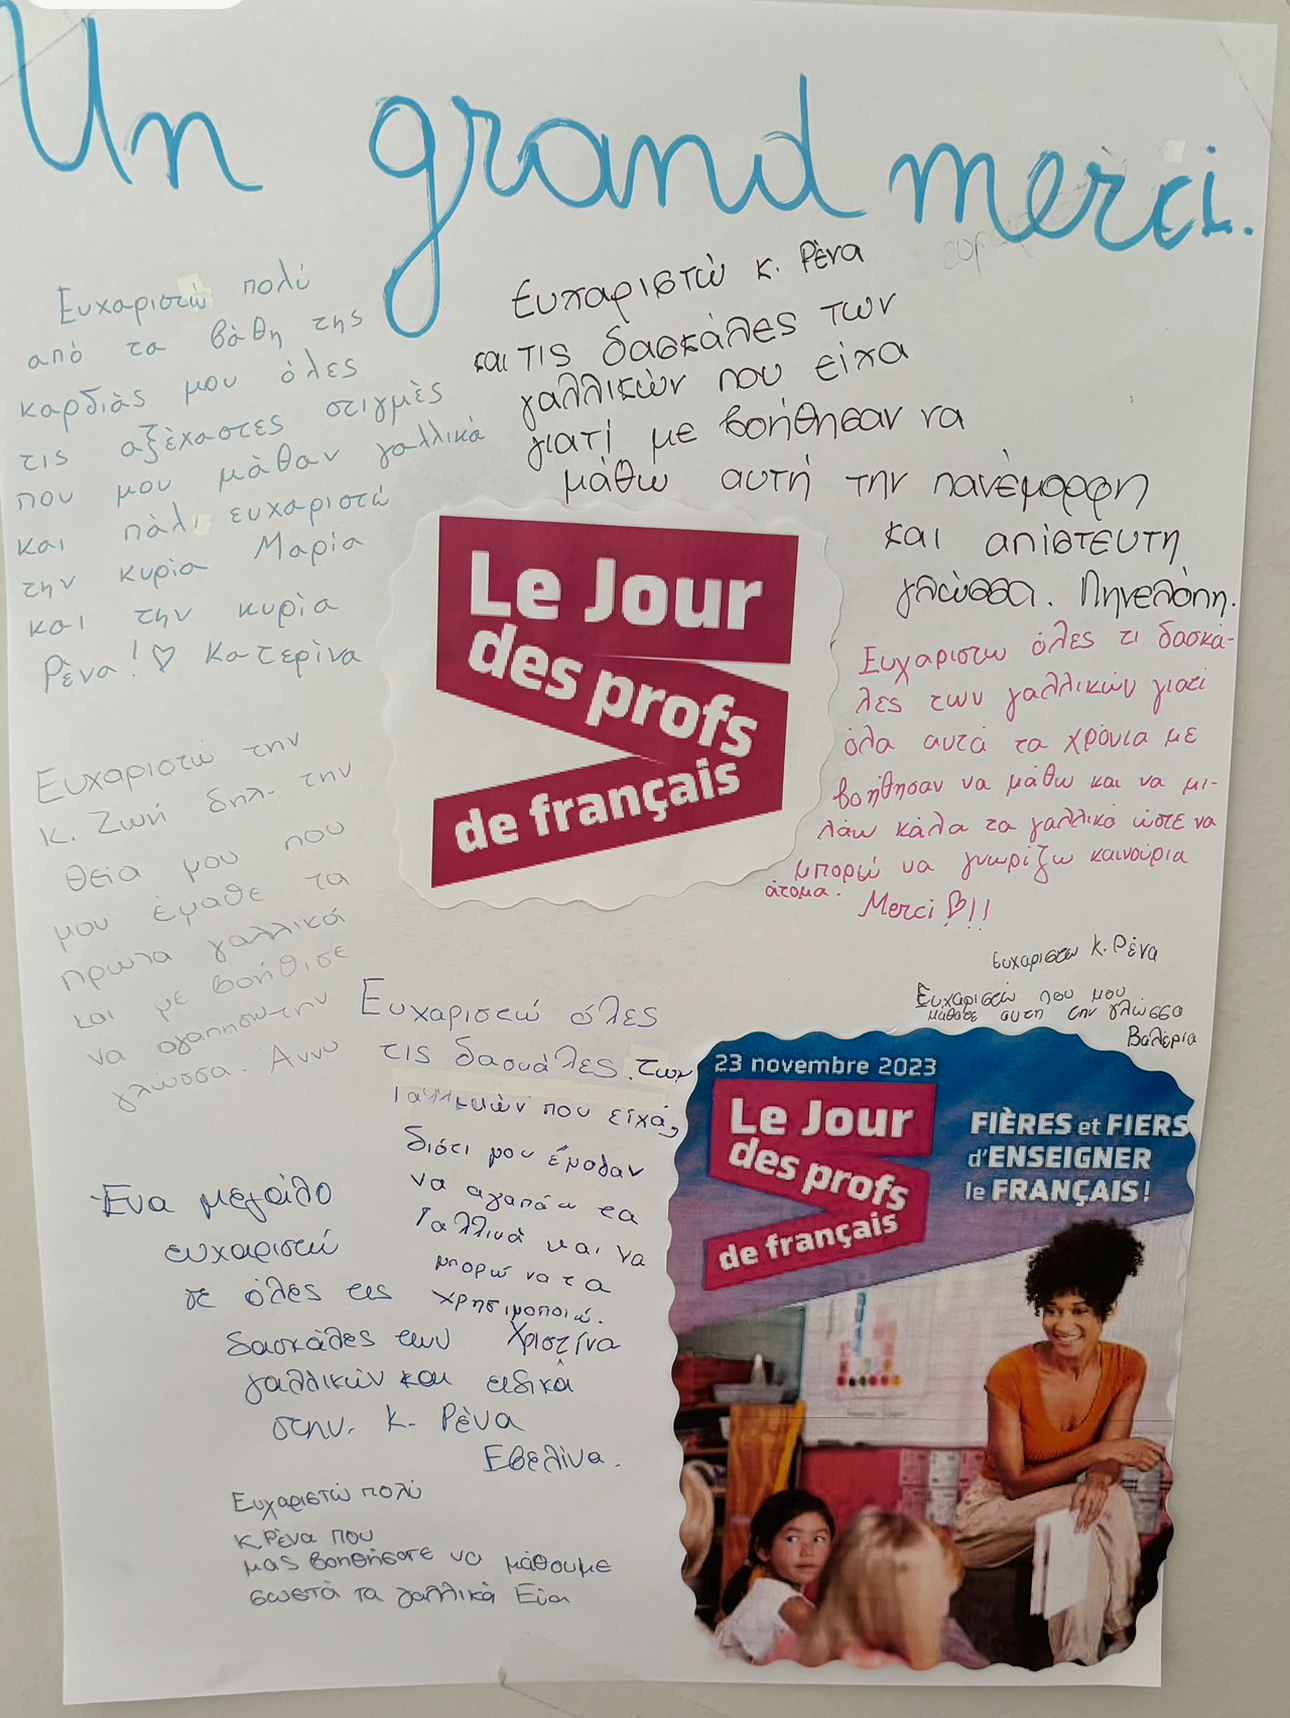 Un grand merci.
Ευχαριστώ πολύ
από τα βάθη της
καρδιάς μου όλες
τις αξέχαστες στιγμές
που μου μάθαν γαλλικά
και πάλι ευχαριστώ
την κυρία Μαρία
και την κυρία
Ρένα! ♡ Κατερίνα
Ευχαριστώ κ. Ρένα
και τις δασκάλες των
γαλλικών που είχα
γιατί με βοήθησαν να
μάθω αυτή την πανέμορφη
και απίστευτη
γλώσσα. Πηνελόπη.
Le Jour
des profs
de français
Ευχαριστω όλες τι δασκά-
λες των γαλλικών γιατί
όλα αυτά τα χρόνια με
βοήθησαν να μάθω και να μι-
λάω κάλα τα γαλλικά ώστε να
μπορώ να γνωρίζω καινούρια
άτομα. Merci ♡!!
Ευχαριστώ την
κ. Ζωή δηλ. την
θεία μου που
μου έμαθε τα
πρώτα γαλλικά
και με βοήθισε
να αγαπήσω την
γλώσσα. Άννυ
ευχαριστω κ. Ρένα
Ευχαριστώ που μου
μάθατε αυτή την γλώσσα
Βαλέρια
Ευχαριστώ όλες
τις δασκάλες των
Γαλλικών που είχα,
διότι μου έμαθαν
να αγαπάω τα
Γαλλικά και να
μπορώ να τα
χρησιμοποιώ.
Χριστίνα
Ένα μεγάλο
ευχαριστώ
σε όλες τις
δασκάλες των
γαλλικών και ειδικά
στην. κ. Ρένα
Εβελίνα.
Ευχαριστώ πολύ
κ. Ρένα που
μας βοηθήσατε να μάθουμε
σωστά τα γαλλικά Εύα
23 novembre 2023
Le Jour
des profs
de français
FIÈRES et FIERS
d'ENSEIGNER
le FRANÇAIS !